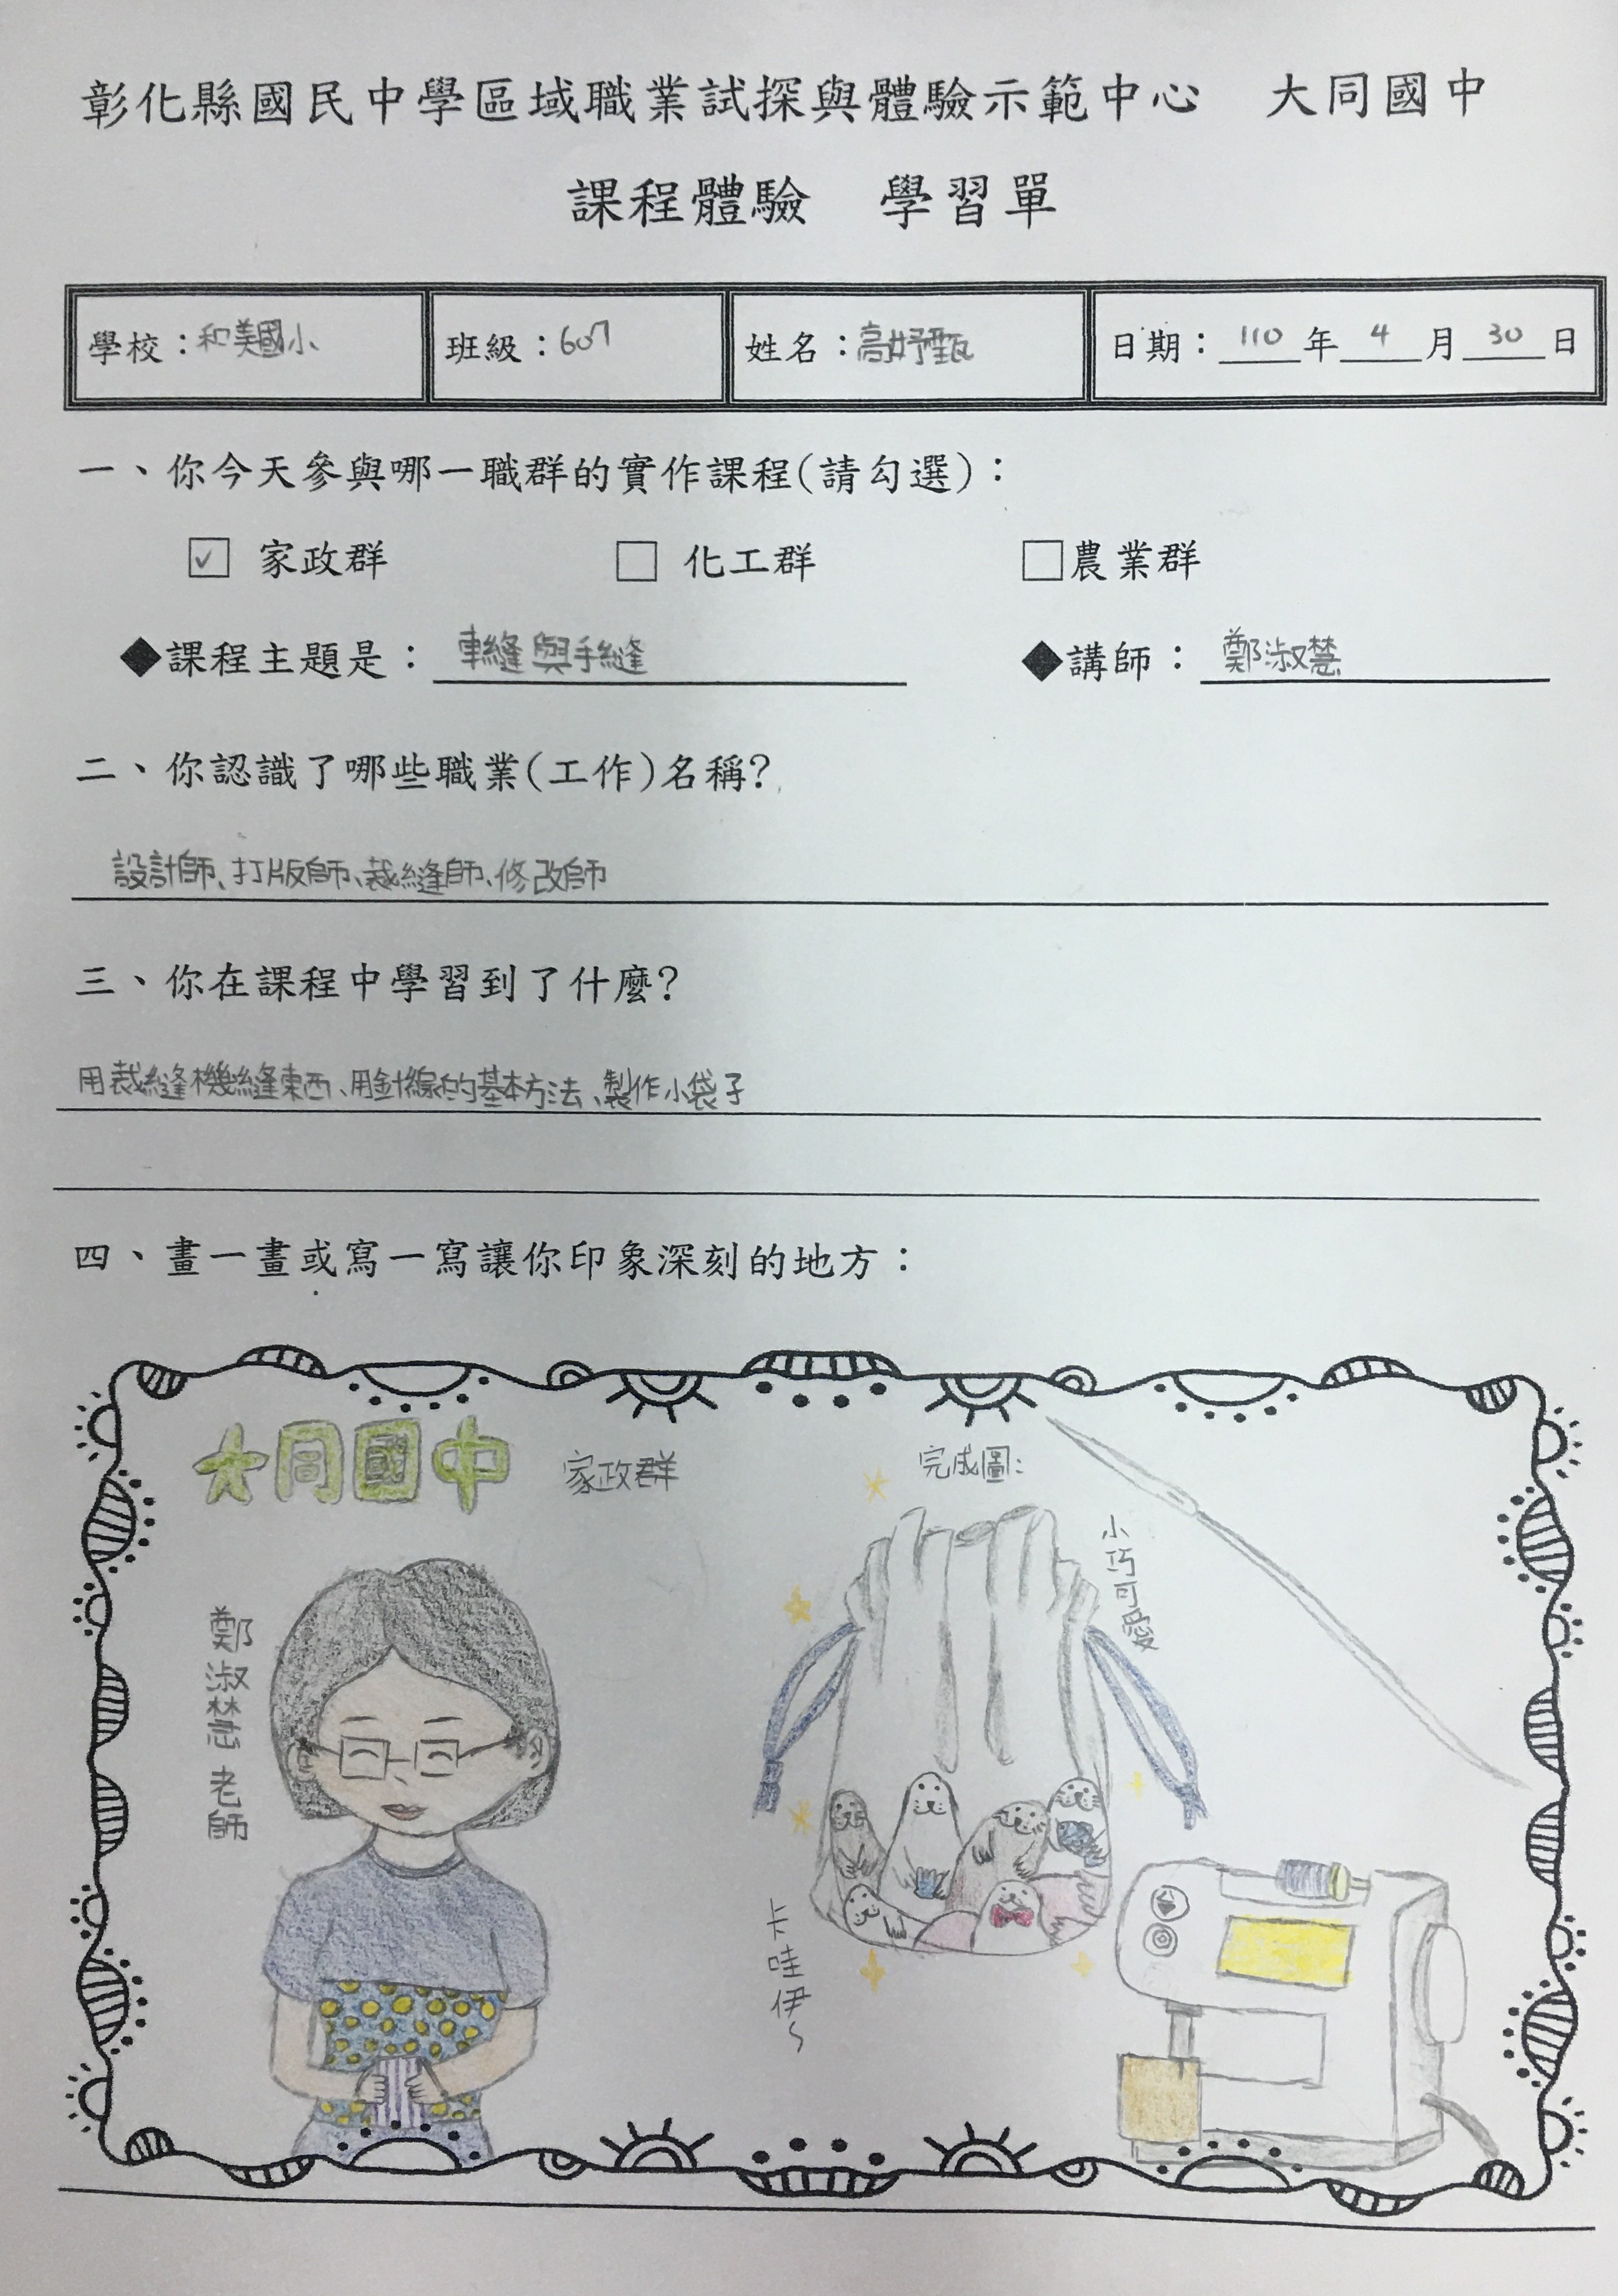 彰化縣國民中學區域職業試探與體驗示範中心　大同國中
課程體驗　學習單
學校：和美國小 班級：607 姓名：高妤甄 日期：110年4月30日
一、你今天參與哪一職群的實作課程(請勾選)：
☑ 家政群 □ 化工群 □農業群
◆課程主題是：車縫與手縫 ◆講師：鄭淑慧
二、你認識了哪些職業(工作)名稱?
設計師、打版師、裁縫師、修改師
三、你在課程中學習到了什麼?
用裁縫機縫東西、用針線的基本方法、製作小袋子
四、畫一畫或寫一寫讓你印象深刻的地方：
大同國中 家政群
完成圖：
小巧可愛
鄭淑慧老師
卡哇伊~